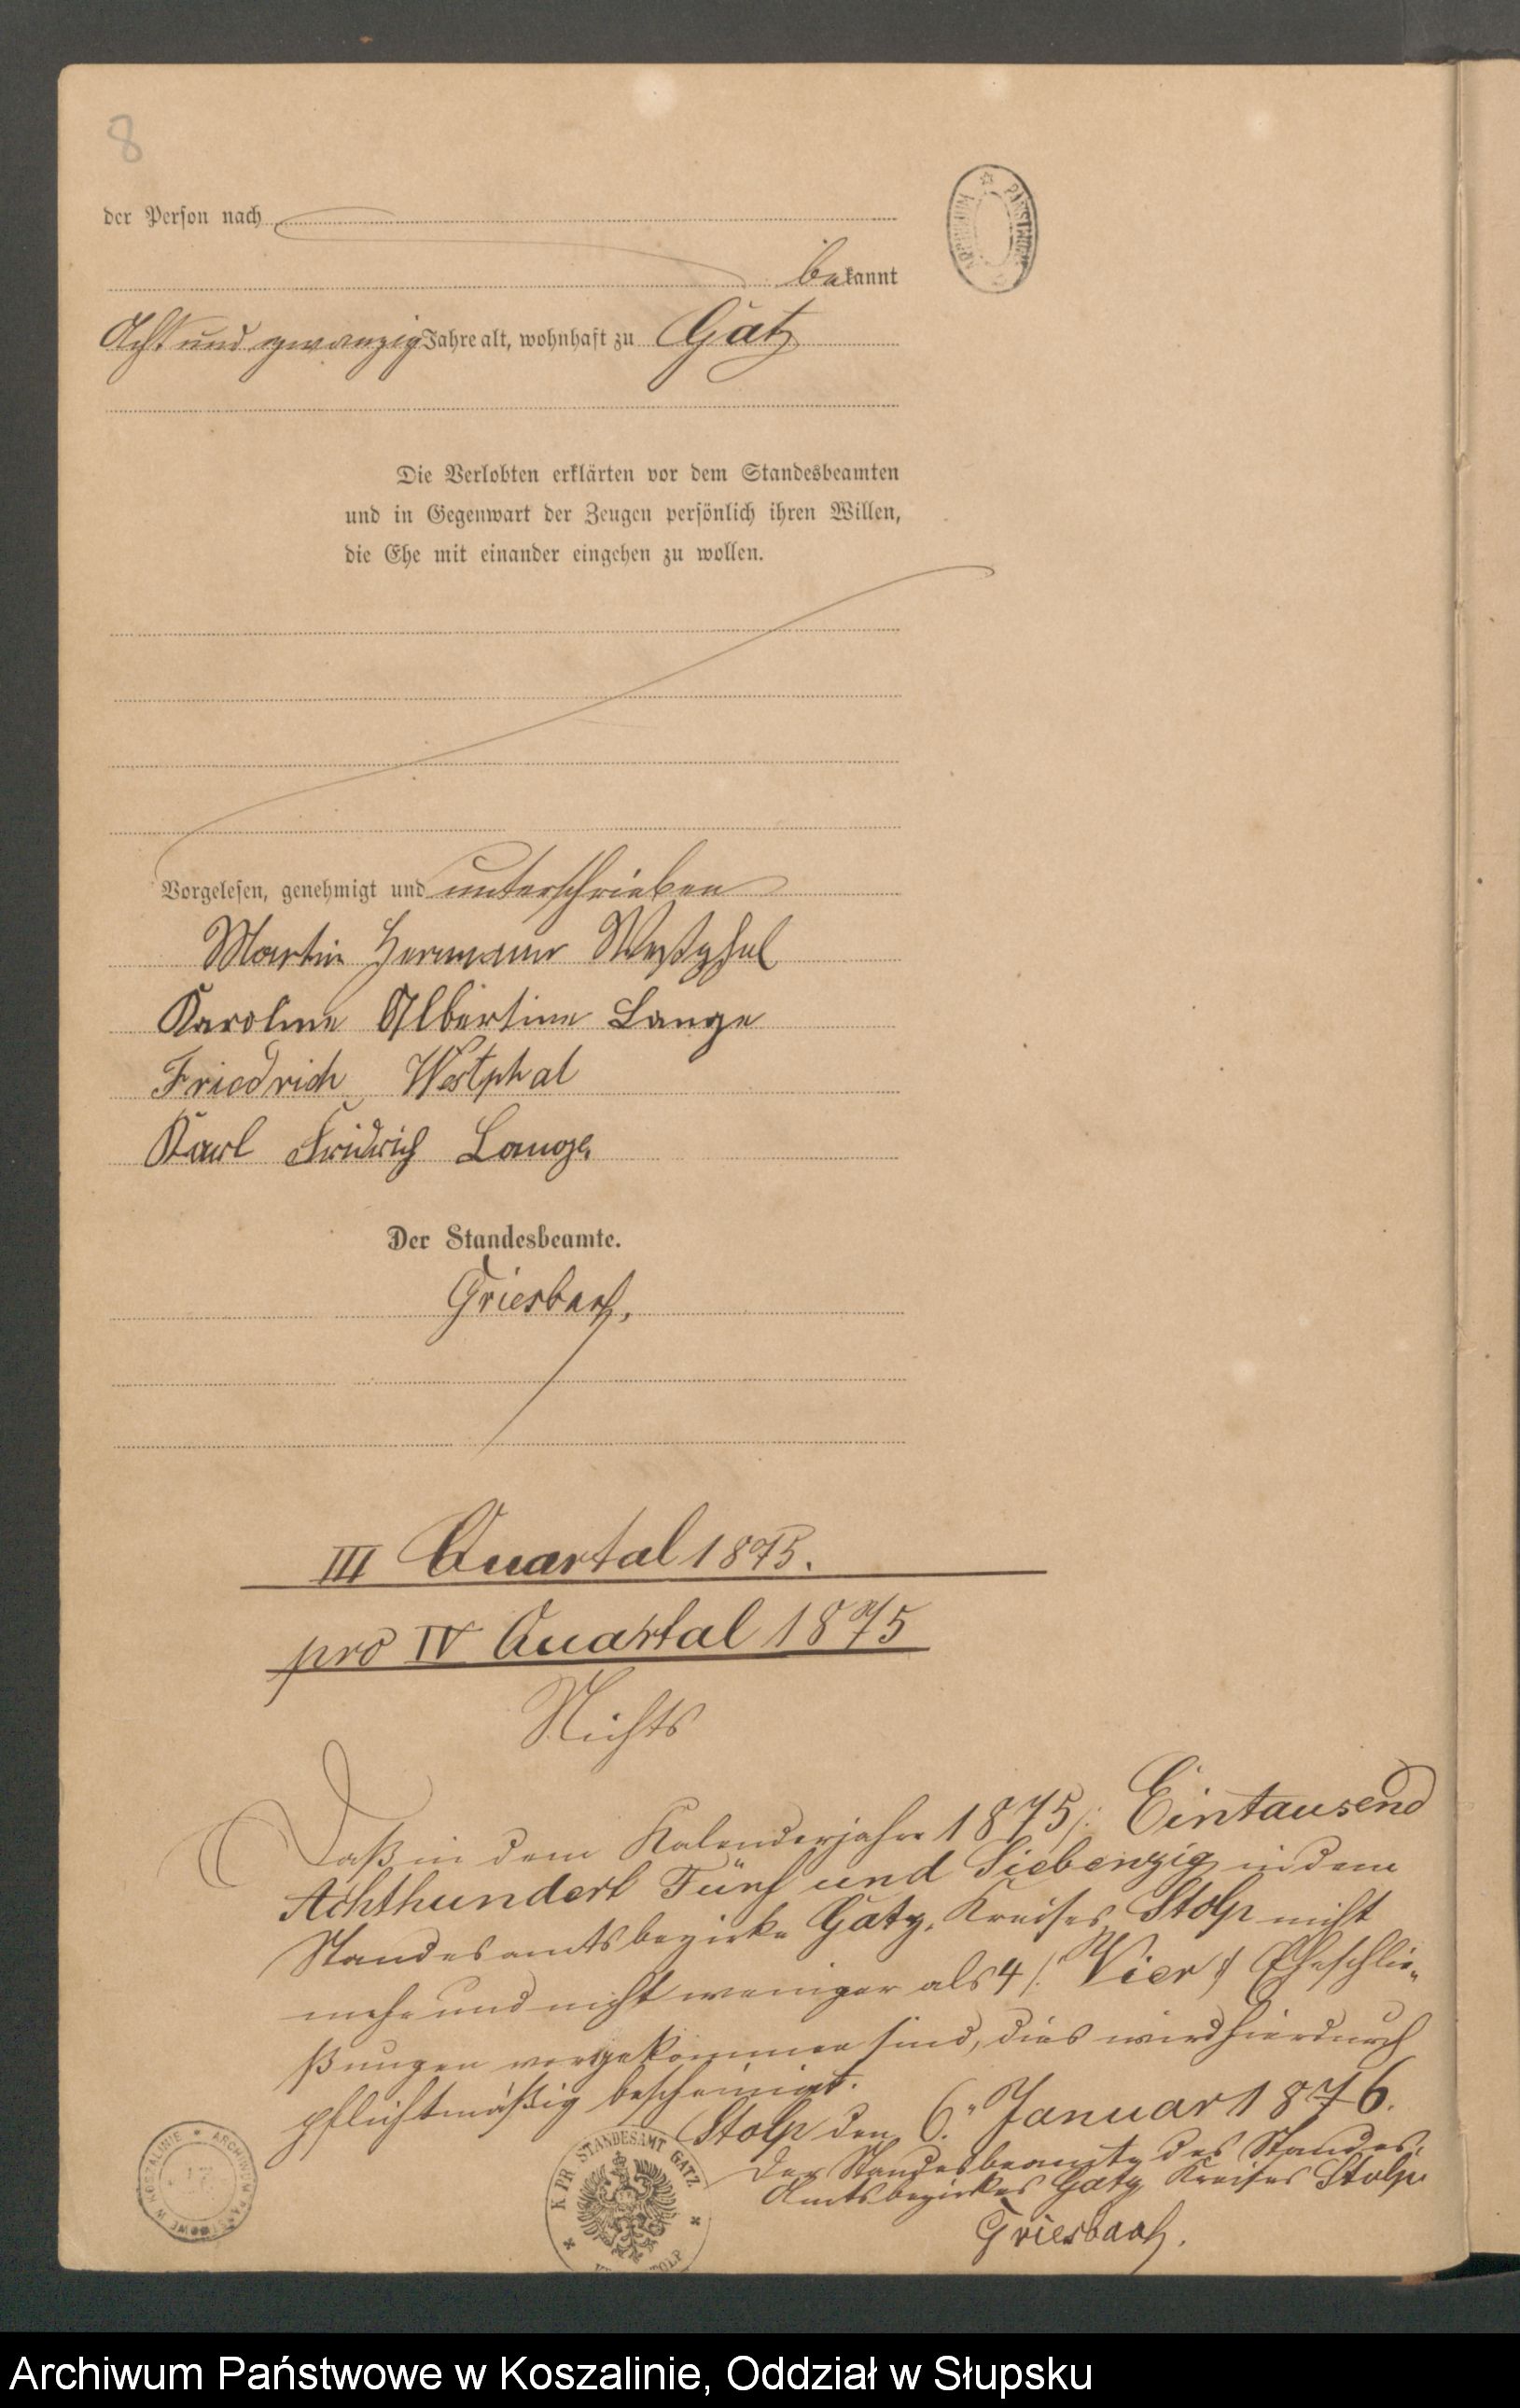 8
der Person nach
bekannt
Acht und zwanzig Jahre alt, wohnhaft zu Gatz
Die Verlobten erklärten vor dem Standesbeamten
und in Gegenwart der Zeugen persönlich ihren Willen,
die Ehe mit einander eingehen zu wollen.
Vorgelesen, genehmigt und unterschrieben
Martin Hermann Westphal
Karoline Albertine Lange
Friedrich Westphal
Karl Fridrich Lange
Der Standesbeamte.
Griesbach.
III Quartal 1875.
pro IV Quartal 1875
Nichts
Daß in dem Kalenderjahre 1875 /: Eintausend
Achthundert Fünf und Siebenzig in dem
Standesamtsbezirke Gatz, Kreises Stolp nicht
mehr und nicht weniger als 4 /: Vier :/ Eheschlie-
ßungen vorgekommen sind, dies wird hierdurch
pflichtmäßig bescheinigt.
Stolp den 6. Januar 1876.
Der Standesbeamte des Standes-
Amtsbezirkes Gatz Kreises Stolp.
Griesbach.
K. PR. STANDESAMT GATZ
ARCHIWUM PAŃSTWOWE W KOSZALINIE
Archiwum Państwowe w Koszalinie, Oddział w Słupsku